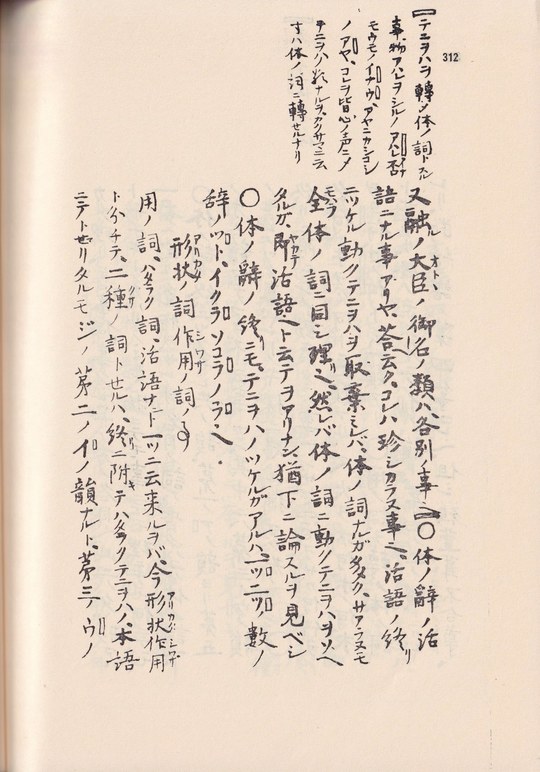 312
【テニヲハヲ轉シテ体ノ詞トスル
事、物アハレヲシルノアハレ、否
モウモノイナウ、アヤニカシコシ
ノアヤ、コレラ皆心ノ声ニメ
テニヲハノ類ナルヲ、カクサマニ云
ハ体ノ詞ニ轉セルナリ
又融ノ大臣ノ御名ノ類ハ、各別ノ事也○体ノ辭ノ活
語ニナル事アリヤ、答云ク、コレハ珍シカラヌ事也、活語ノ終リ
ニツケル動クテニヲハヲ取棄ミレバ、体ノ詞ナルガ多ク、サアラヌモ
全体ノ詞ニ同シ理也、然レバ体ノ詞ニ動クテニヲハヲソヘ
タルガ、即活語也ト云テヲアリナン、猶下ニ論スルヲ見ベシ
○体ノ辭ノ終ニモ、テニヲハノツケルガアルハ、一ツ二ツノ数ノ
辞ノツト、イクラソコラノラ也、
形状ノ詞作用ノ詞ノ事
用ノ詞、ハタラク詞、活語ナド一ツニ云来ルヲバ、今形状作用
ト分チテ、二種ノ詞トセルハ、終ニ附キテハタラクテニヲハノ、本語
ニテトヂリタルモジノ第二ノイノ韻ナルト、第三ノウノ